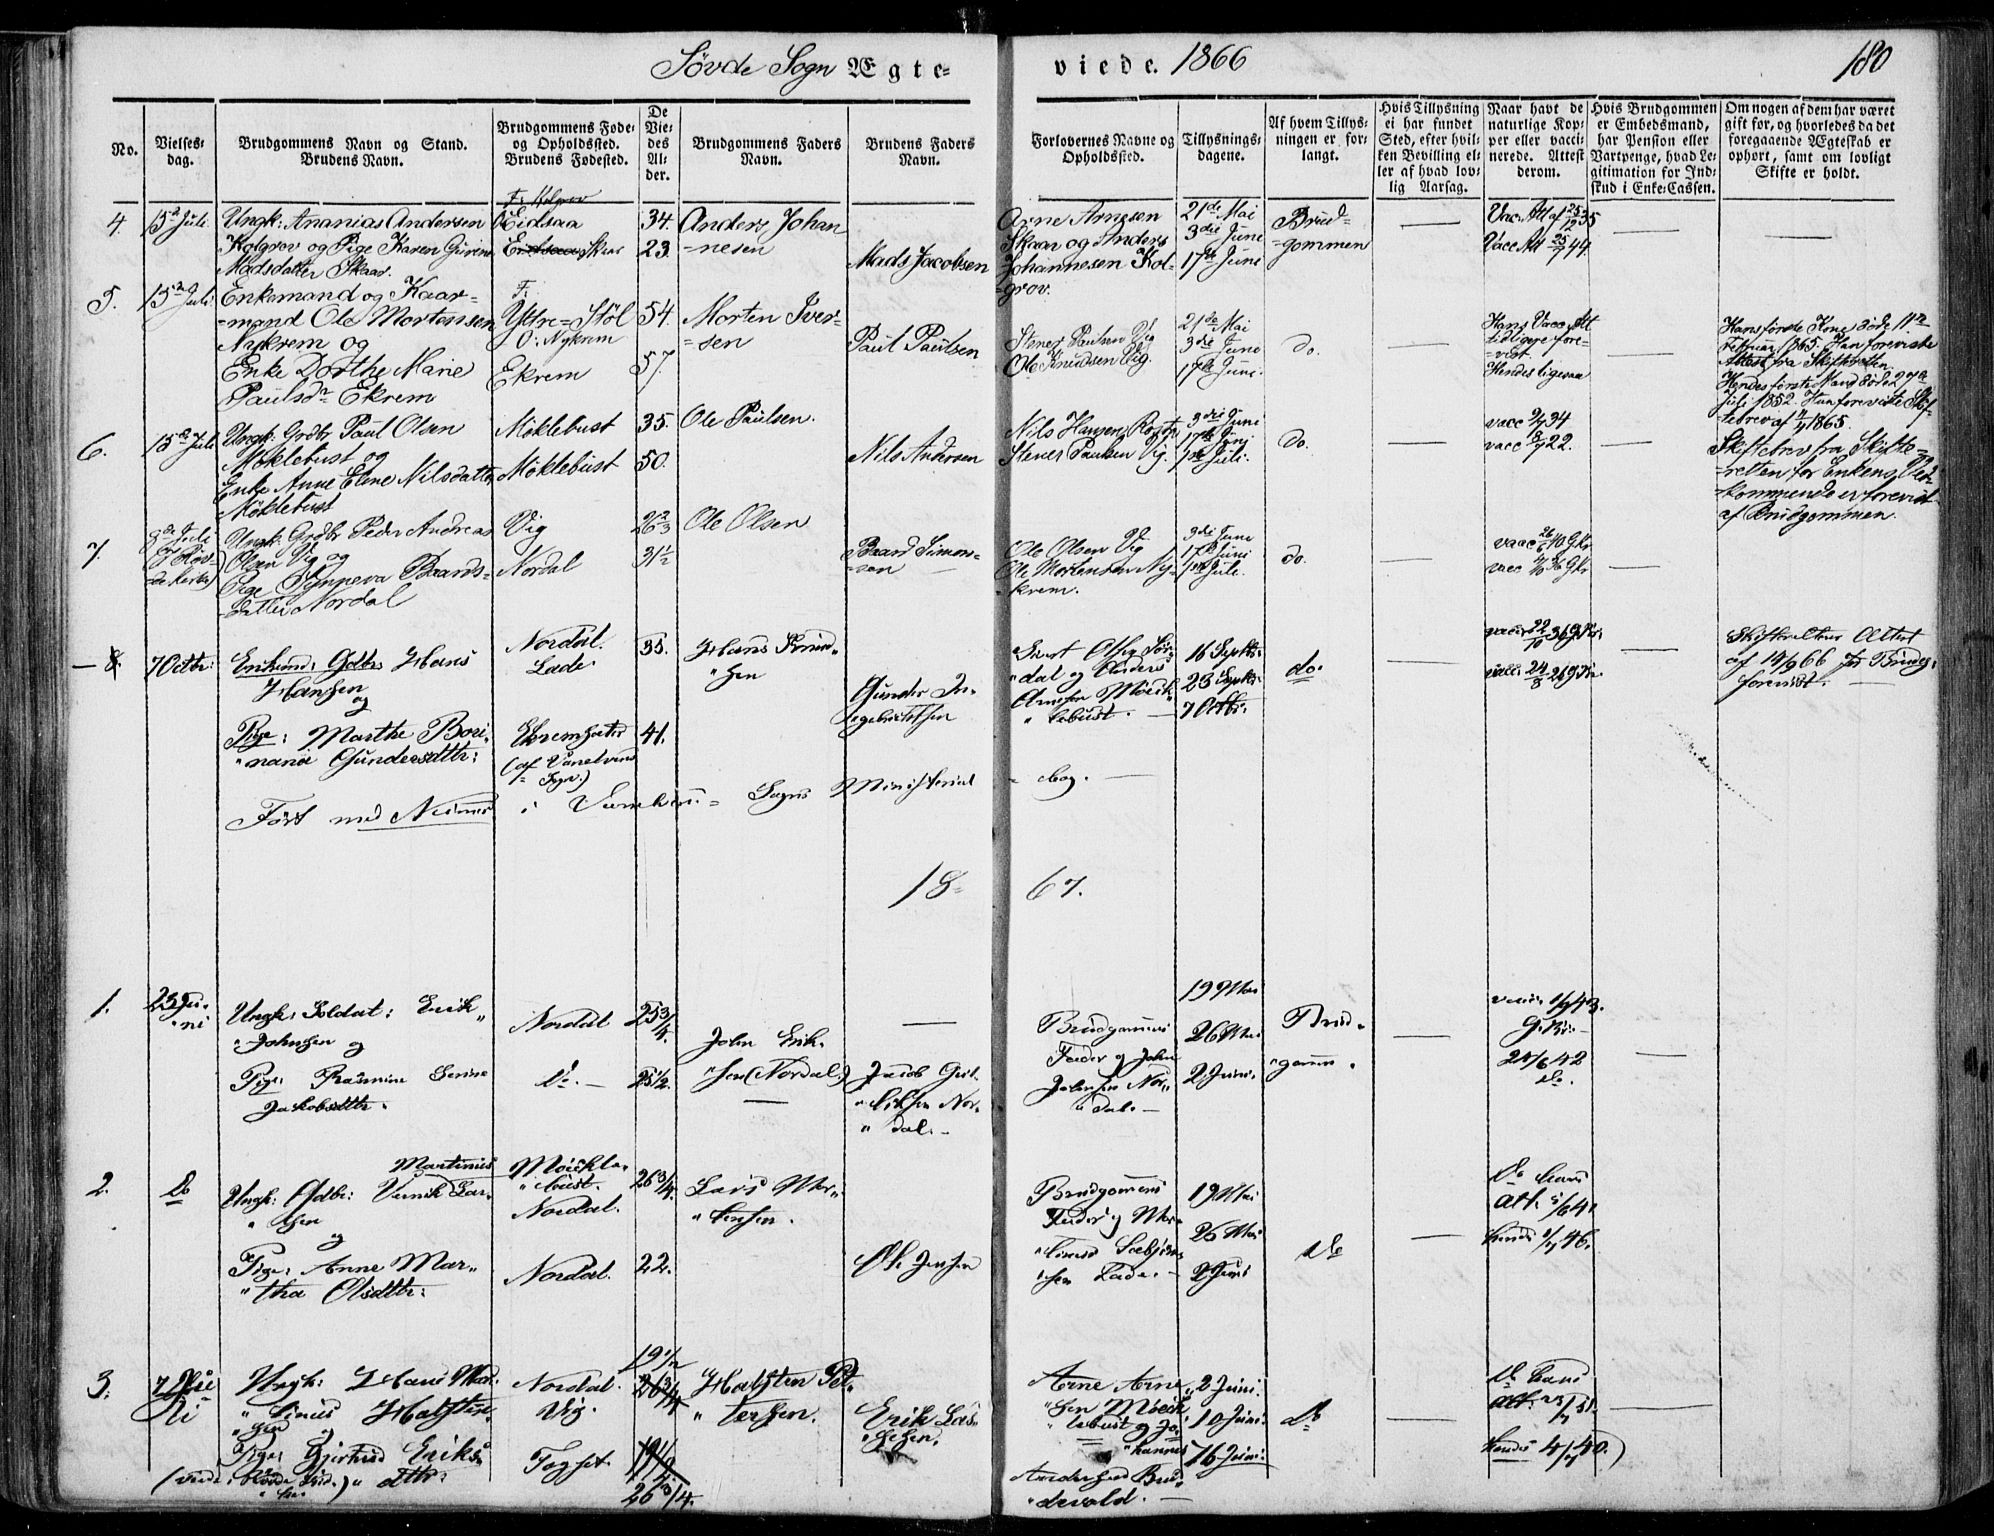 Søvde Sogn Ægte-
viede. 1866
180
No.
Vielses-
dag.
Brudgommens Navn og Stand.
Brudens Navn.
Brudgommens Føde-
og Opholdssted.
Brudens Fødested.
De
Vie-
des
Al-
der.
Brudgommens Faders
Navn.
Brudens Faders
Navn.
Forlovernes Navne og
Opholdssted.
Tillysnings-
dagene.
Af hvem Tillys-
ningen er for-
langt.
Hvis Tillysning
ei har fundet
Sted, efter hvil-
ken Bevilling el-
ler af hvad lov-
lig Aarsag.
Naar havt de
naturlige Kop-
per eller vacci-
nerede. Attest
derom.
Hvis Brudgommen
er Embedsmand,
har Pension eller
Vartpenge, hvad Le-
gitimation for Ind-
skud i Enke-Cassen.
Om nogen af dem har været
gift før, og hvorledes da det
foregaaende Ægteskab er
ophørt, samt om lovligt
Skifte er holdt.
4.
15de Juli
Ungk: Ananias Andersen
Kolgrov og Pige Karen Gurine
Madsdatter Skaar.
F: Kolgrov
O: Eidsaa
Skaar
34.
23.
Anders Johan
=nesen
Mads Jacobsen
Arne Arnesen
Skaar og Anders
Johannesen Kol-
=grov.
21de Mai
3die Juni
17de Juni
Brud=
=gommen
Vac. Att af 25/12 35
Vacc Att 25/7 44
5.
15de Juli
Enkemand og Kaar=
=mand Ole Mortensen
Nykrem og
Enke Dorthe Marie
Paulsdr Ekrem
F:
Yttre=Støl
O: Nykrem
Ekrem
54.
57.
Morten Iver-
=sen
Paul Paulsen
Stener Paulsen Vig
Ole Knudsen Vig.
21de Mai
3die Juni
17de Juni.
do.
Hans Vacc Att
tidligere fore-
=vist
Hendes ligesaa
Hans første Kone døde 11te
Februar 1865. Han foreviste
Attest fra Skifteretten.
Hendes første Mand døde 27de
Juli 1852. Hun foreviste Skif-
tebrev af 4/4 1865.
6.
15de Juli
Ungk: Grdbr Paul Olsen
Møklebust og
Enke Anne Elene Nilsdatter
Møklebust
Møklebust
Møklebust
35.
50.
Ole Paulsen.
Nils Andersen
Nils Hansen
Stener Paulsen Vig.
3die Juni
17de Juni
1ste Juli.
do.
vacc 9/7 34
vacc 8/7 22.
Skiftebrev fra Skifte=
=retten for Enkens Ved-
kommende er forevist
af Brudgommen.
7.
8de Juli
(i Røv-
=de Kirke)
Ungk: Grdbr Peder Andreas
Olsen Vig og
Pige Synneva Baards-
=datter Nordal
Vig
Nordal
26 2/3
31 1/2
Ole Olsen
Baard Simon-
=sen
Ole Olsen Vig
Ole Mortensen Ny-
krem.
3die Juni
17de Juni
1ste Juli.
do.
vacc 26/6 40 GKr
vacc 4/10 36 GKr
8.
7 Octbr:
Enkemd: Gdbr: Hans
Hansen
og
Pige: Marthe Bori-
nane Gundersdttr:
Nordal.
Lade.
(af Vanelvens
Sogn.)
35.
41.
Hans Knud
"sen
Gunder In-
gebrietsen
dal og Anders
Arnesen Møck-
"lebust.
16 Septb:
23 Septb:
7 Octb:
do.
vacc: 22/10 36 GKr:
vacc: 24/8 26 GKr.
Skifterettens Attest
af 14/9 66 for Brudg:
forevist.
Ført med Numer i Vanelvens Sogns Ministerial
bog.
18
67.
1.
23 Ju-
"ni
Ungk: Soldat: Erik
"Johnsen og
Pige: Rasmine Serine
Jakobsdttr.
Nordal
do.
25 3/4.
25 1/2.
John Erik-
"sen (Nordal.)
Jacob Gul-
"liksen Nor-
"dal.
Brudgomens
Fader og John
Johnsen Nor-
"dal.
19 Mai
26 Mai
2 Juni.
Brud-
"gomm
vacc: 1/9 43.
GKr:
24/6 42
do.
2.
do
Martinius
Ungk: Gdbr: Vernik Lar-
"sen
og
Pige: Anne Mar-
"tha Olsdttr:
Møckle-
"bust.
Nordal.
Nordal.
26 3/4.
22.
Lars Mor-
"tensen.
Ole Jensen
Brudgomens
Fader og Mor-
"sen Lade.
19 Mai
26 Mai
2 Juni
do
do hans
att. 5/6 41
hendes 1/7 46.
3.
7 Juli
Ungk: Hans Mar-
"tinus Halsten-
"sen og
Pige: Gjertrud Eriks-
"dttr:
Nordal.
Vig.
19 1/2
26 3/4
26 3/4.
Halsten Pet-
"tersen.
Erik Las-
"sesen.
Arne Arne-
"sen Møck-
"lebust og Jo-
"hannes
Andersen Bru-
"devold.
2 Juni.
10 Juni
16 Juni
do
do hans
hendes 4/7 40.